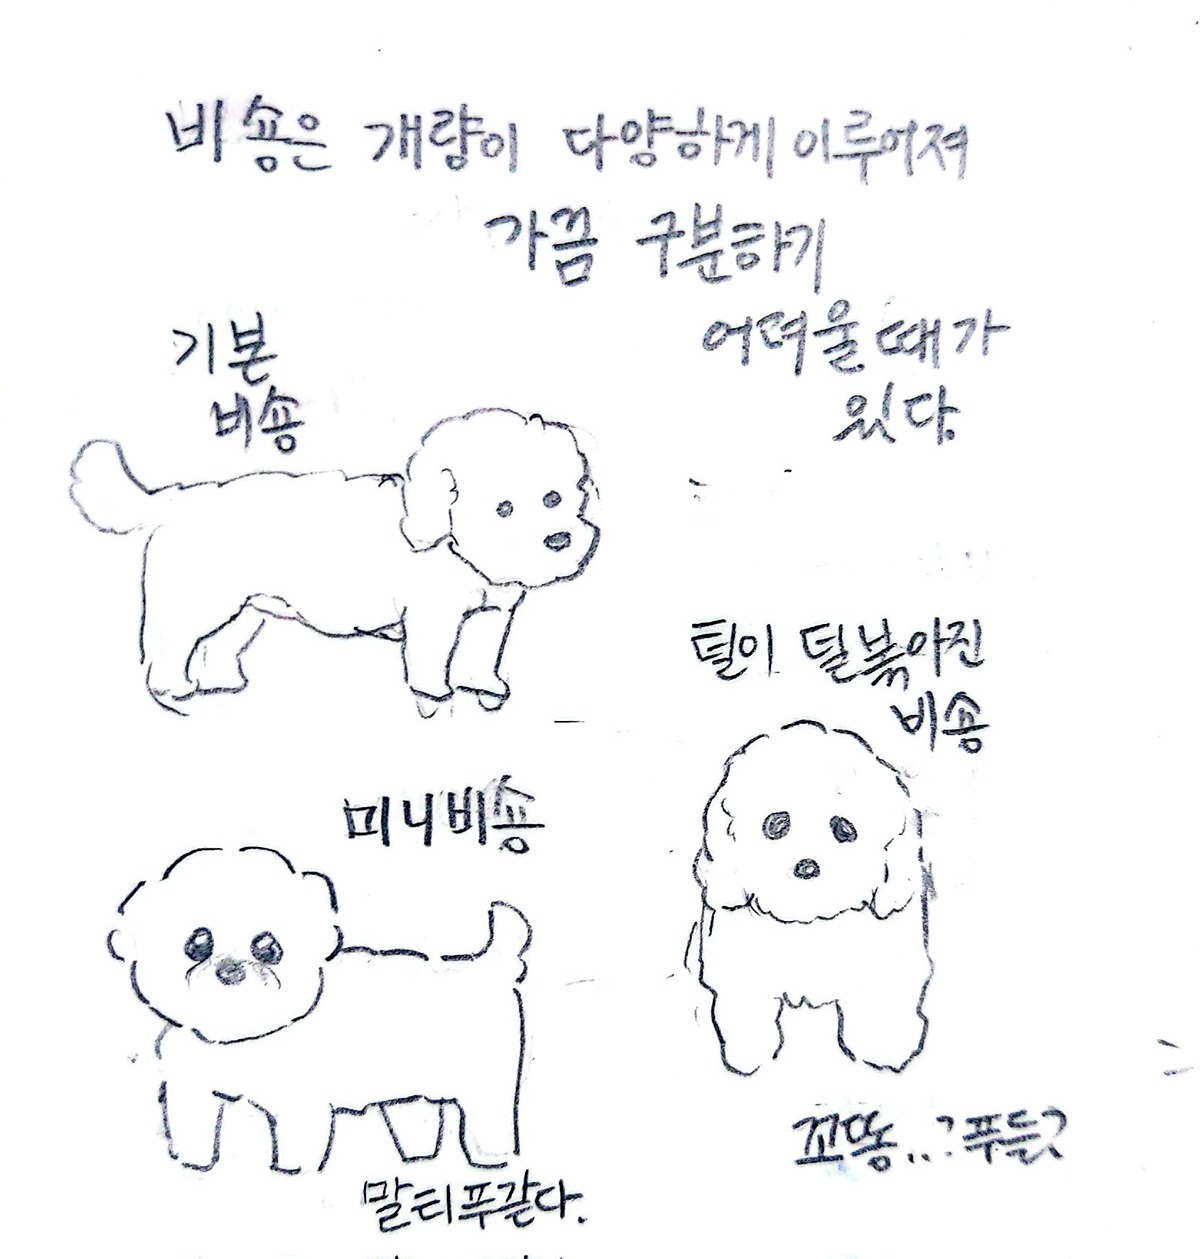 비숑은 개량이 다양하게 이루어져
가끔 구분하기
어려울 때가
있다.
기본
비숑
털이 덜 볶아진
비숑
미니비숑
꼬똥..? 푸들?
말티푸같다.